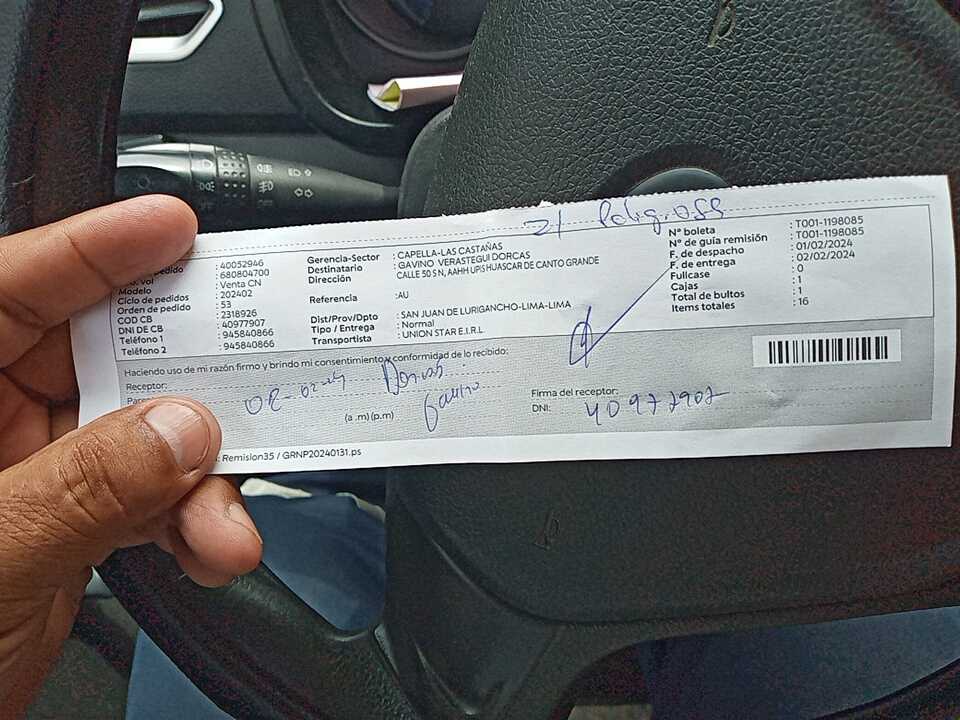 Z1 Peligroso
: 40052946
pedido : 680804700
. Vol : Venta CN
Modelo : 202402
Ciclo de pedidos : 53
Orden de pedido : 2318926
COD CB : 40977907
DNI DE CB : 945840866
Teléfono 1 : 945840866
Teléfono 2
Gerencia-Sector : CAPELLA-LAS CASTAÑAS
Destinatario : GAVINO VERASTEGUI DORCAS
Dirección CALLE 50 S N, AAHH UPIS HUASCAR DE CANTO GRANDE
Referencia : AU
Dist/Prov/Dpto : SAN JUAN DE LURIGANCHO-LIMA-LIMA
Tipo / Entrega : Normal
Transportista : UNION STAR E.I.R.L
N° boleta : T001-1198085
N° de guía remisión : T001-1198085
F. de despacho : 01/02/2024
F. de entrega : 02/02/2024
Fullcase : 0
Cajas : 1
Total de bultos : 1
Items totales : 16
Haciendo uso de mi razón firmo y brindo mi consentimiento y conformidad de lo recibido:
Receptor: Dorcas
Gavino
(a .m) (p.m)
Firma del receptor:
DNI: 40977907
: Remision35 / GRNP20240131.ps